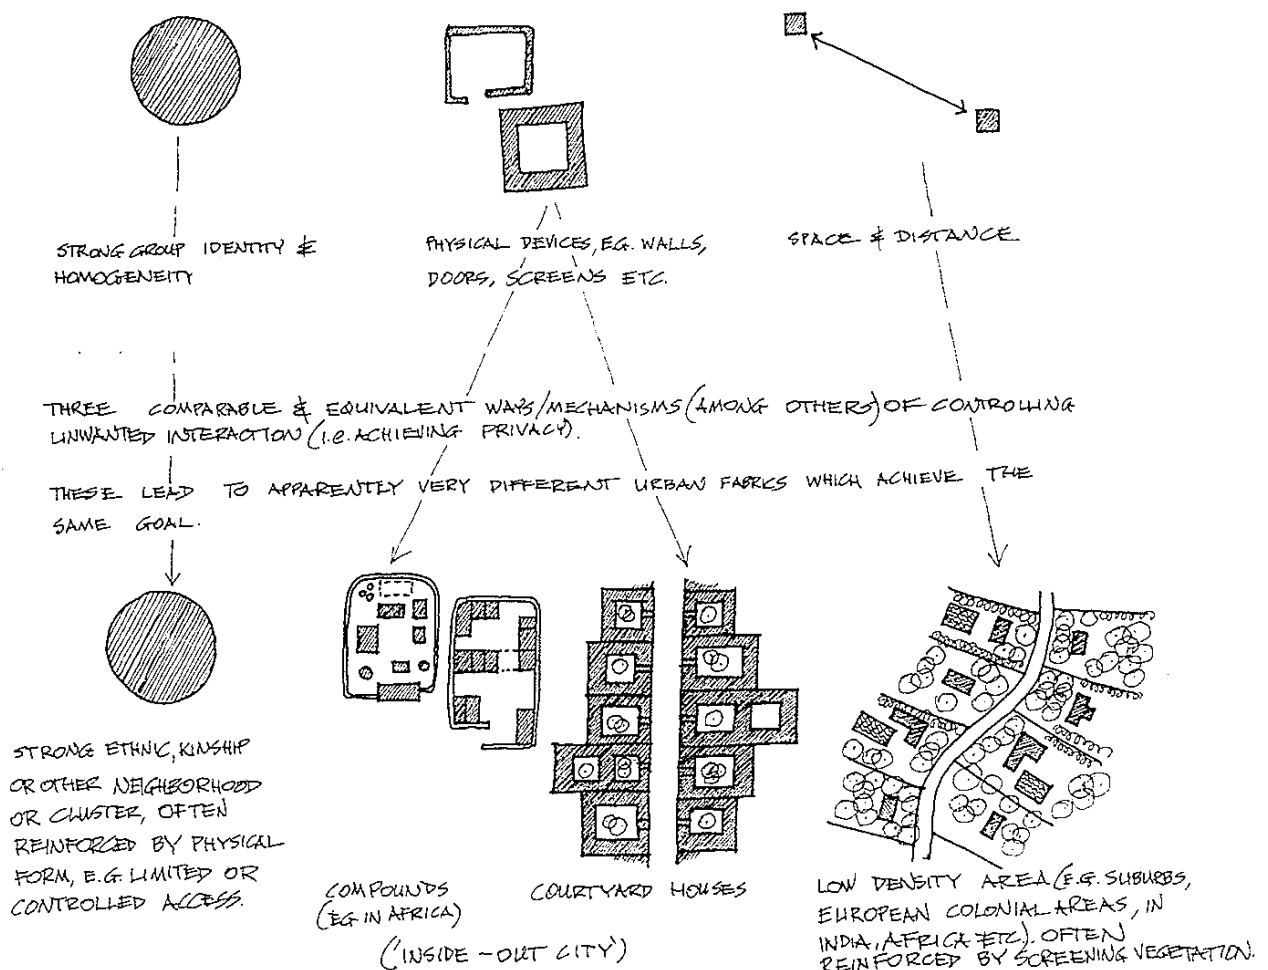 STRONG GROUP IDENTITY &
HOMOGENEITY
PHYSICAL DEVICES, E.G. WALLS,
DOORS, SCREENS ETC.
SPACE & DISTANCE
THREE COMPARABLE & EQUIVALENT WAYS/MECHANISMS (AMONG OTHERS) OF CONTROLLING
UNWANTED INTERACTION (i.e. ACHIEVING PRIVACY).
THESE LEAD TO APPARENTLY VERY DIFFERENT URBAN FABRICS WHICH ACHIEVE THE
SAME GOAL.
STRONG ETHNIC, KINSHIP
OR OTHER NEIGHBORHOOD
OR CLUSTER, OFTEN
REINFORCED BY PHYSICAL
FORM, E.G. LIMITED OR
CONTROLLED ACCESS.
COMPOUNDS
(EG IN AFRICA)
COURTYARD HOUSES
('INSIDE-OUT CITY')
LOW DENSITY AREA (E.G. SUBURBS,
EUROPEAN COLONIAL AREAS, IN
INDIA, AFRICA ETC). OFTEN
REINFORCED BY SCREENING VEGETATION.